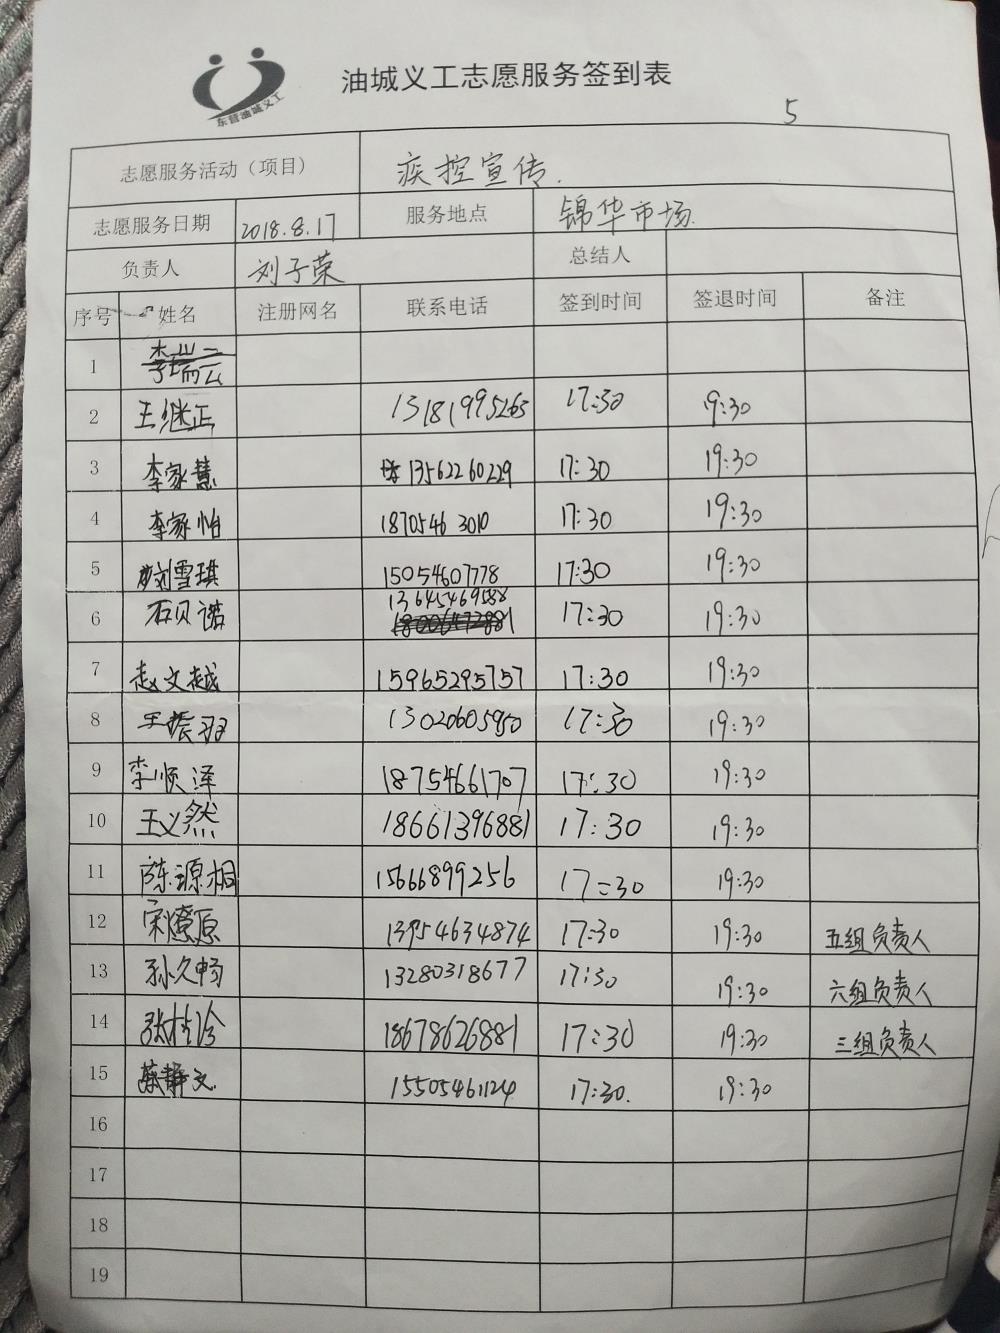 东营油城义工
油城义工志愿服务签到表
5
志愿服务活动（项目） 疾控宣传.
志愿服务日期 2018.8.17 服务地点 锦华市场.
负责人 刘子荣 总结人
序号 姓名 注册网名 联系电话 签到时间 签退时间 备注
1 李瑞云
2 王继正 13181995263 17:30 19:30
3 李家慧 13562260229 17:30 19:30
4 李家怡 18705463010 17:30 19:30
5 刘雪琪 15054607778 17:30 19:30
6 石贝诺 13645469588 17:30 19:30
7 赵文越 15965295757 17:30 19:30
8 13020605950 17:30 19:30
9 李顺泽 18754661707 17:30 19:30
10 王义然 18661396881 17:30 19:30
11 陈源桐 15666899256 17:30 19:30
12 宋燎原 13954634874 17:30 19:30 五组负责人
13 孙久畅 13280318677 17:30 19:30 六组负责人
14 18678626881 17:30 19:30 三组负责人
15 蔡静文 15505461124 17:30. 19:30
16
17
18
19